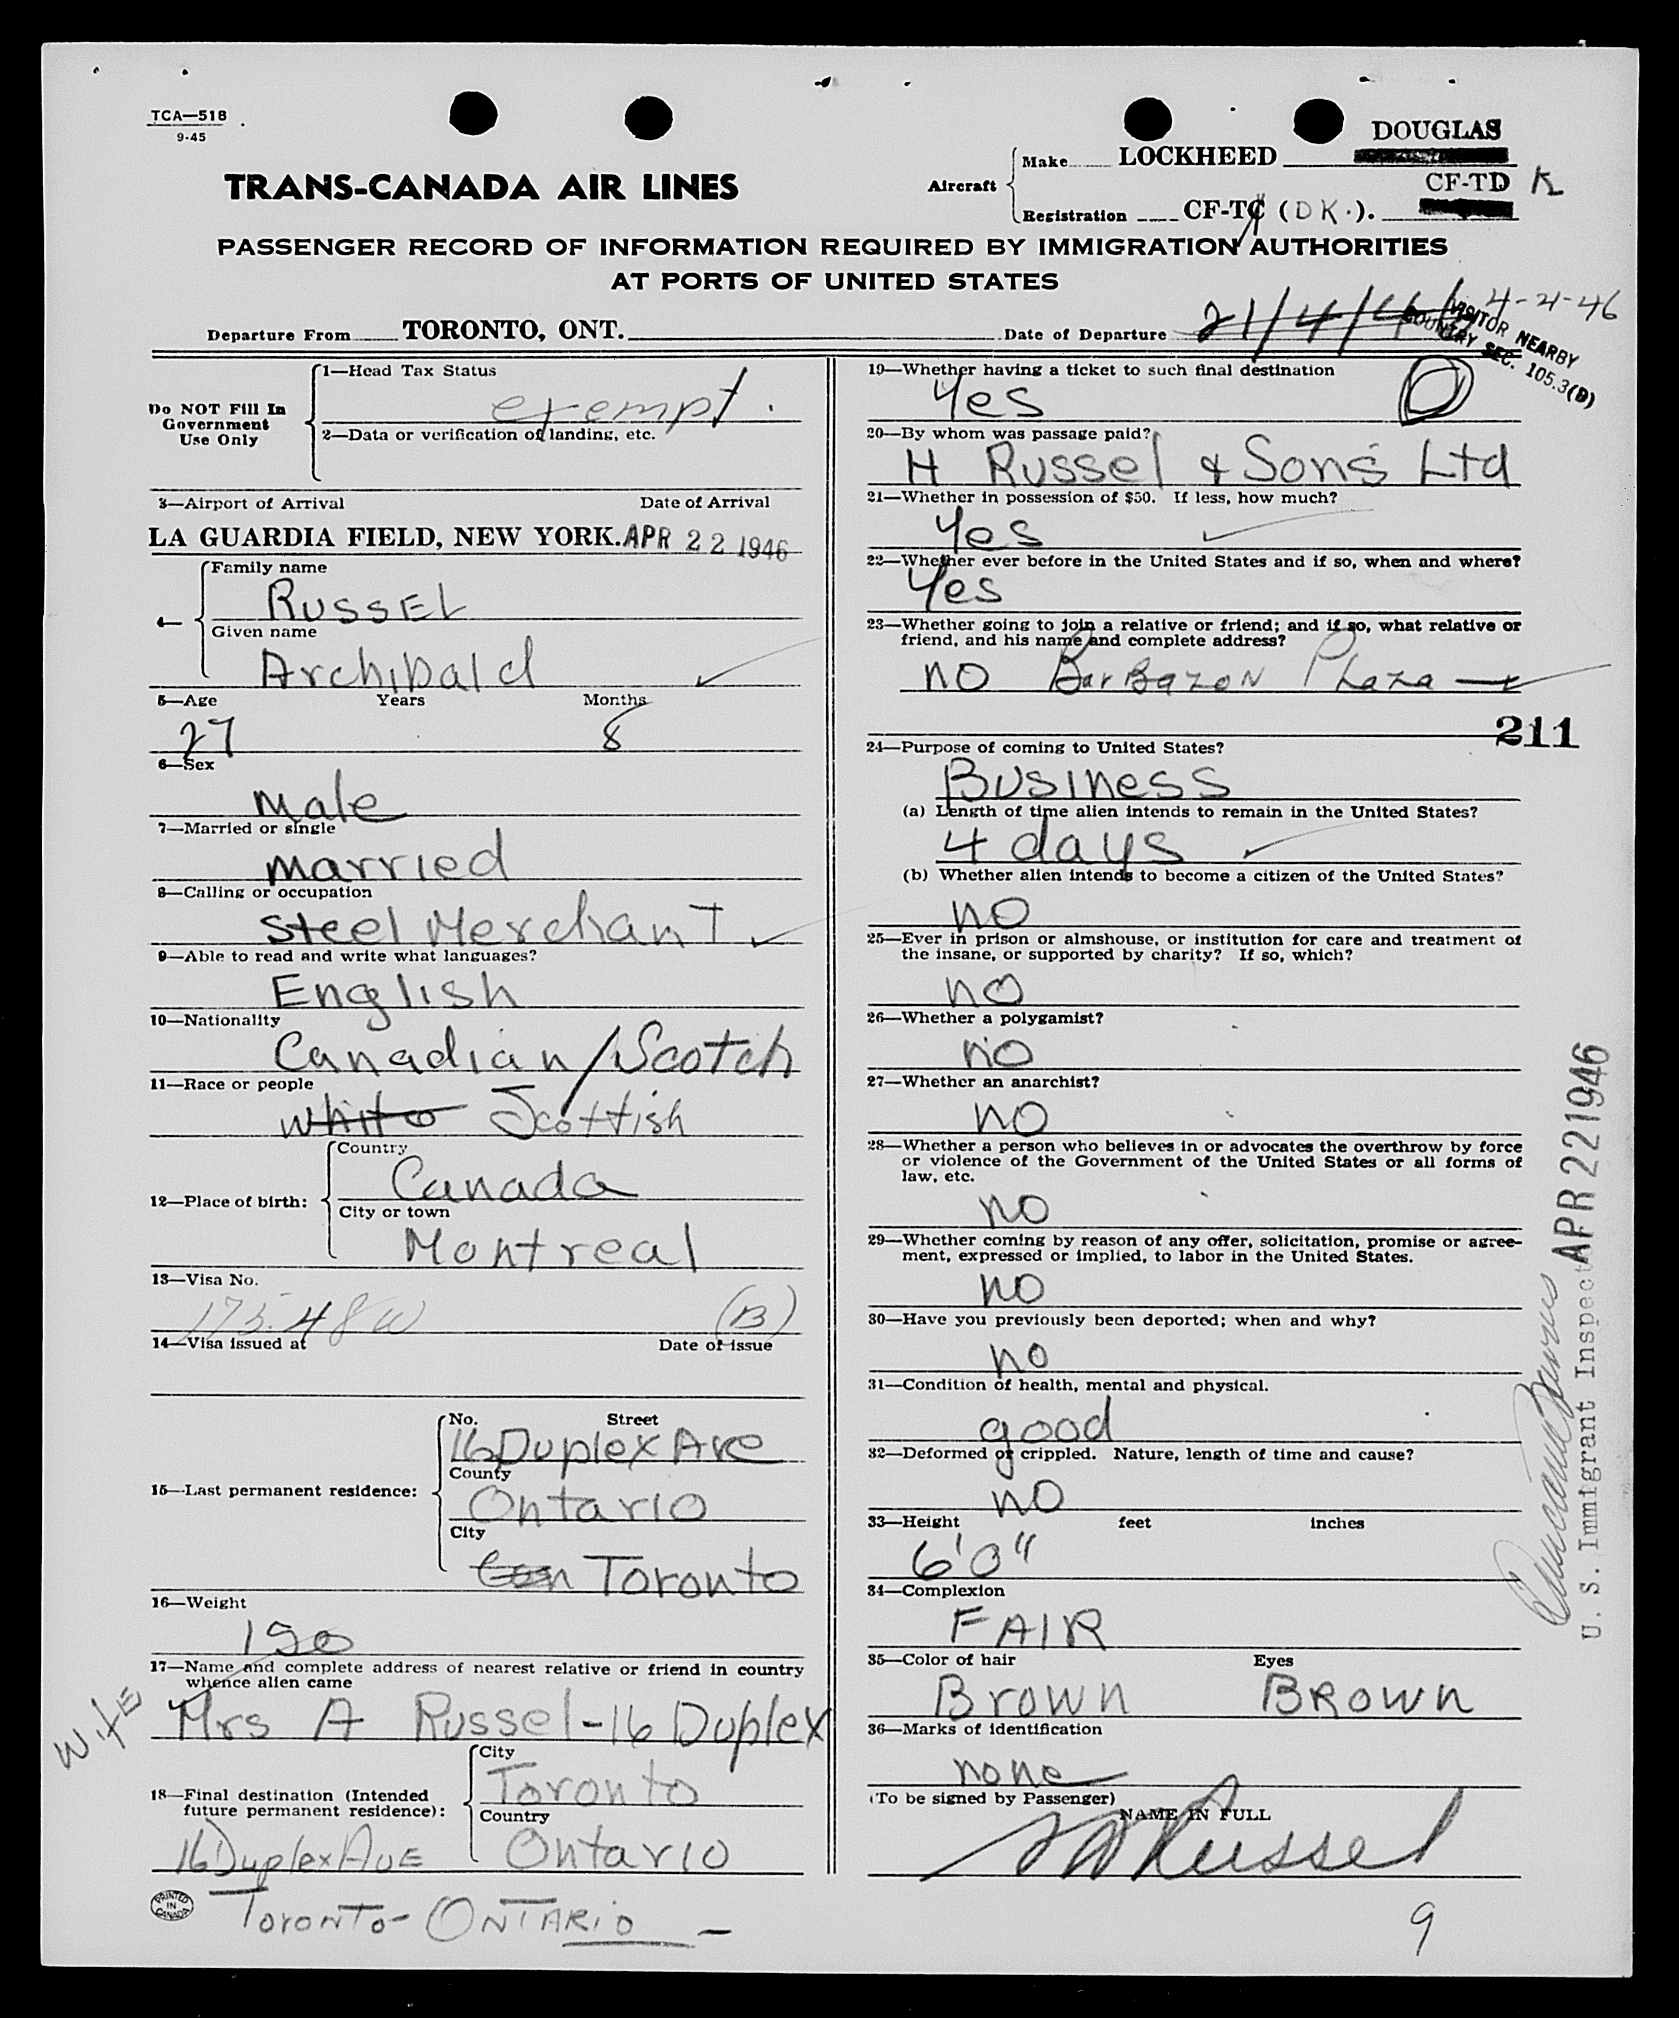 TCA—518
9-45
TRANS-CANADA AIR LINES
Aircraft
Make
LOCKHEED
DOUGLAS
Registration
CF-TC (DK.).
CF-TD K
PASSENGER RECORD OF INFORMATION REQUIRED BY IMMIGRATION AUTHORITIES
AT PORTS OF UNITED STATES
Departure From
TORONTO, ONT.
Date of Departure
21/4/46
VISITOR NEARBY
COUNTRY SEC. 105.3(B)
Do NOT Fill In
Government
Use Only
1—Head Tax Status
exempt.
2—Data or verification of landing, etc.
3—Airport of Arrival Date of Arrival
LA GUARDIA FIELD, NEW YORK. APR 22 1946
4—
Family name
RUSSEL
Given name
Archibald
5—Age Years Months
27 8
6—Sex
Male
7—Married or single
married
8—Calling or occupation
Steel Merchant
9—Able to read and write what languages?
English
10—Nationality
Canadian/Scotch
11—Race or people
White Scottish
12—Place of birth:
Country
Canada
City or town
Montreal
13—Visa No.
175.48W (B)
14—Visa issued at Date of issue
15—Last permanent residence:
No. Street
16 Duplex Ave
County
Ontario
City
Toronto
16—Weight
190
17—Name and complete address of nearest relative or friend in country
whence alien came
Wife
Mrs A Russel-16 Duplex
18—Final destination (Intended
future permanent residence):
City
Toronto
Country
16 Duplex AVE
Ontario
PRINTED
IN
CANADA
TORONTO- ONTARIO -
19—Whether having a ticket to such final destination
Yes
20—By whom was passage paid?
H Russel & Sons Ltd
21—Whether in possession of $50. If less, how much?
Yes
22—Whether ever before in the United States and if so, when and where?
Yes
23—Whether going to join a relative or friend; and if so, what relative or
friend, and his name and complete address?
NO BarBazon Plaza
211
24—Purpose of coming to United States?
Business
(a) Length of time alien intends to remain in the United States?
4 days
(b) Whether alien intends to become a citizen of the United States?
NO
25—Ever in prison or almshouse, or institution for care and treatment of
the insane, or supported by charity? If so, which?
NO
26—Whether a polygamist?
NO
27—Whether an anarchist?
NO
28—Whether a person who believes in or advocates the overthrow by force
or violence of the Government of the United States or all forms of
law, etc.
NO
29—Whether coming by reason of any offer, solicitation, promise or agree-
ment, expressed or implied, to labor in the United States.
NO
30—Have you previously been deported; when and why?
NO
31—Condition of health, mental and physical.
good
32—Deformed or crippled. Nature, length of time and cause?
NO
33—Height feet inches
6'0"
34—Complexion
FAIR
35—Color of hair Eyes
Brown BROWN
36—Marks of identification
none
(To be signed by Passenger)
NAME IN FULL
Russel
9
APR 22 1946
U. S. Immigrant Inspector